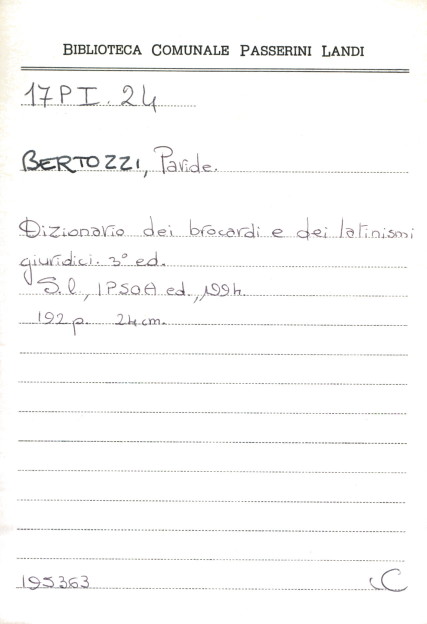 BIBLIOTECA COMUNALE PASSERINI LANDI
17 P I. 24
BERTOZZI, Paride.
Dizionario dei brocardi e dei latinismi
giuridici. 3° ed.
S.l., IPSOA ed., 1994.
192 p. 24 cm.
195363 C